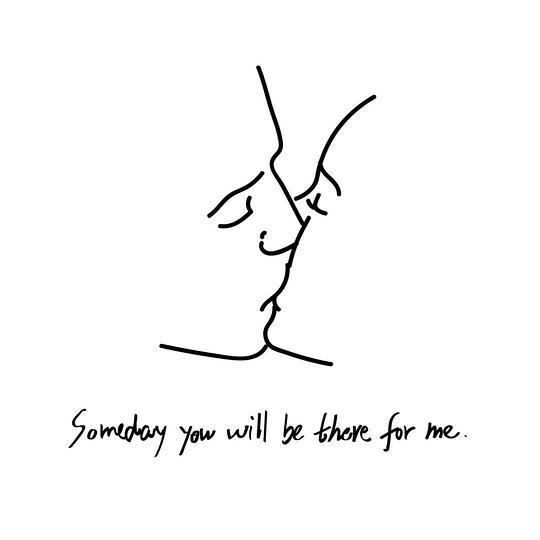 Someday you will be there for me.